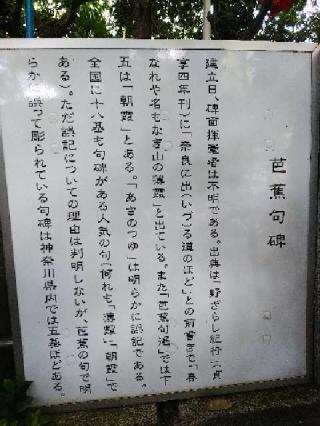 芭蕉句碑
建立日、碑面揮毫者は不明である。出典は「野ざらし紀行」(貞
享四年刊)に「奈良に出(いづ)る道のほど」との前書きで「春
なれや名もなき山の薄霞」と出ている。また「芭蕉句選」では下
五は「朝霞」とある。「あさのつゆ」は明らかに誤記である。
全国に十八基も句碑がある人気の句(何れも「薄霞」「朝霞」で
ある)。ただ誤記についての理由は判明しないが、芭蕉の句で明
らかに誤って彫られている句碑は神奈川県内では五基ほどある。